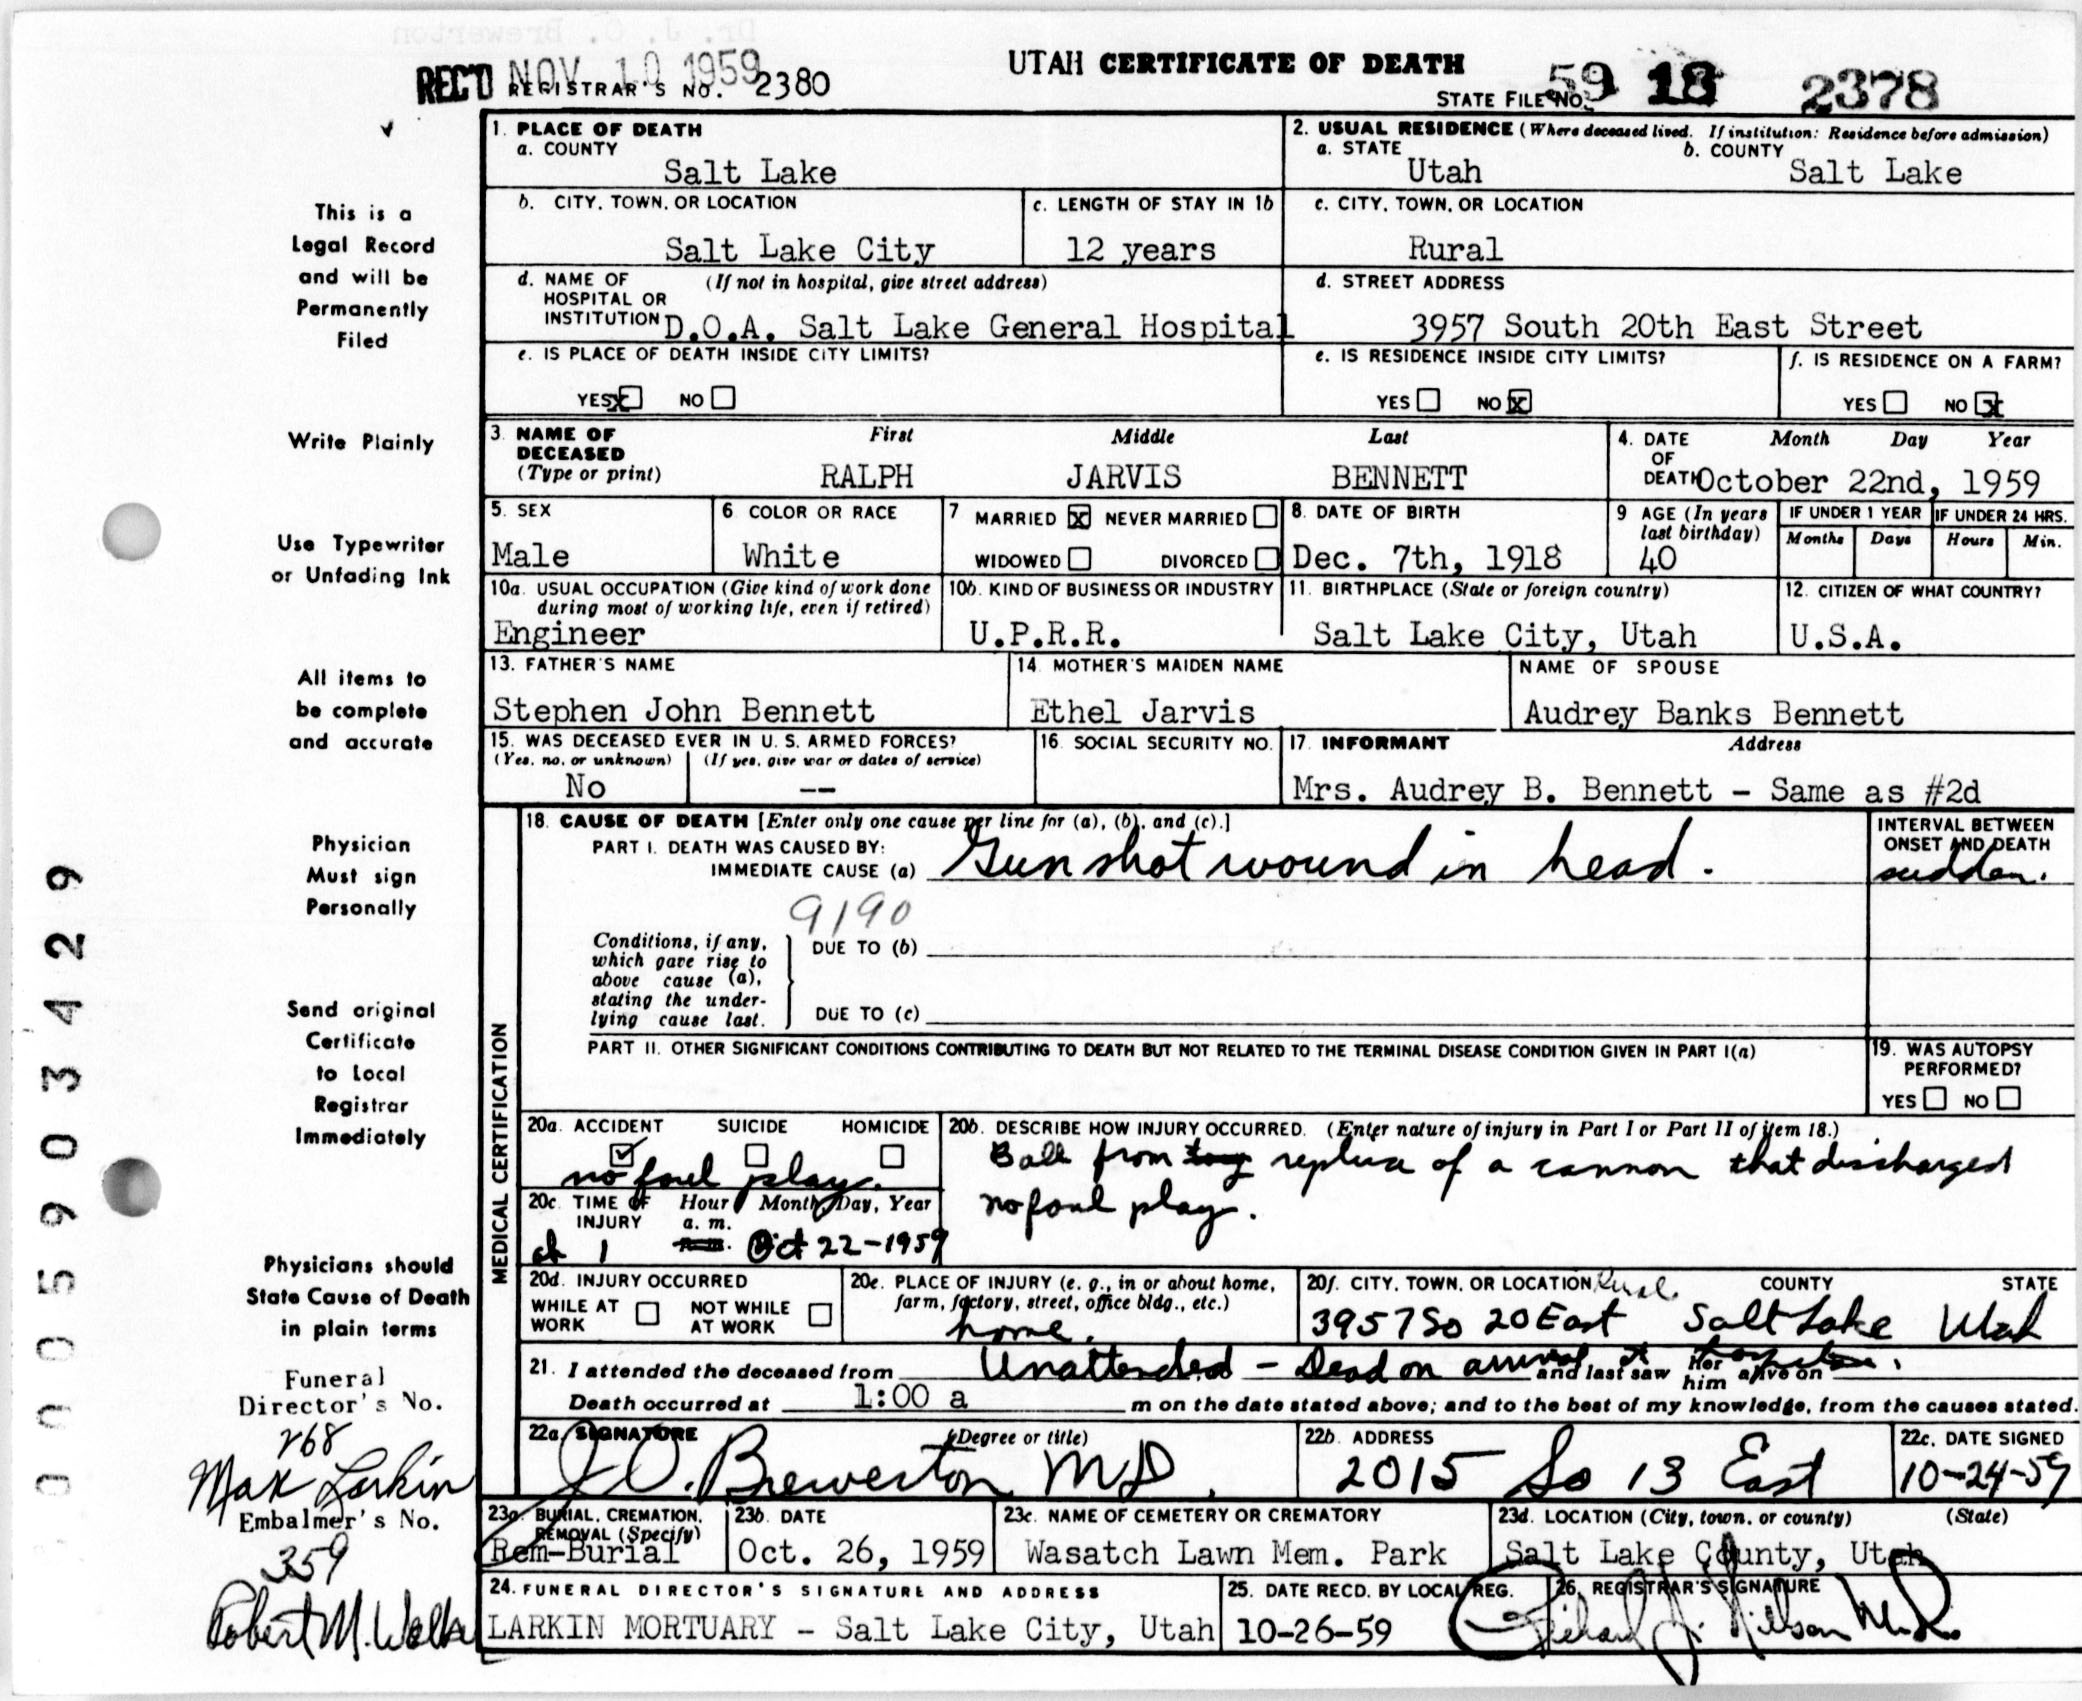 Dr. J. C. Brewerton
UTAH CERTIFICATE OF DEATH
REC'D NOV 10 1959
REGISTRAR'S NO. 2380
STATE FILE NO. 59 18 2378
This is a
Legal Record
and will be
Permanently
Filed
Write Plainly
Use Typewriter
or Unfading Ink
All items to
be complete
and accurate
Physician
Must sign
Personally
Send original
Certificate
to Local
Registrar
Immediately
Physicians should
State Cause of Death
in plain terms
Funeral
Director's No.
268
Max Larkin
Embalmer's No.
359
Robert M. Walker
005903429
1. PLACE OF DEATH
a. COUNTY
Salt Lake
2. USUAL RESIDENCE (Where deceased lived. If institution: Residence before admission)
a. STATE b. COUNTY
Utah Salt Lake
b. CITY, TOWN, OR LOCATION
Salt Lake City
c. LENGTH OF STAY IN 1b
12 years
c. CITY, TOWN, OR LOCATION
Rural
d. NAME OF (If not in hospital, give street address)
HOSPITAL OR
INSTITUTION D.O.A. Salt Lake General Hospital
d. STREET ADDRESS
3957 South 20th East Street
e. IS PLACE OF DEATH INSIDE CITY LIMITS?
YES X NO
e. IS RESIDENCE INSIDE CITY LIMITS?
YES NO X
f. IS RESIDENCE ON A FARM?
YES NO X
3. NAME OF DECEASED (Type or print)
First Middle Last
RALPH JARVIS BENNETT
4. DATE OF DEATH Month Day Year
October 22nd, 1959
5. SEX
Male
6. COLOR OR RACE
White
7 MARRIED X NEVER MARRIED
WIDOWED DIVORCED
8. DATE OF BIRTH
Dec. 7th, 1918
9 AGE (In years last birthday)
40
IF UNDER 1 YEAR
Months Days
IF UNDER 24 HRS.
Hours Min.
10a. USUAL OCCUPATION (Give kind of work done
during most of working life, even if retired)
Engineer
10b. KIND OF BUSINESS OR INDUSTRY
U.P.R.R.
11. BIRTHPLACE (State or foreign country)
Salt Lake City, Utah
12. CITIZEN OF WHAT COUNTRY?
U.S.A.
13. FATHER'S NAME
Stephen John Bennett
14. MOTHER'S MAIDEN NAME
Ethel Jarvis
NAME OF SPOUSE
Audrey Banks Bennett
15. WAS DECEASED EVER IN U. S. ARMED FORCES?
(Yes, no, or unknown) (If yes, give war or dates of service)
No --
16. SOCIAL SECURITY NO.
17. INFORMANT Address
Mrs. Audrey B. Bennett - Same as #2d
MEDICAL CERTIFICATION
18. CAUSE OF DEATH [Enter only one cause per line for (a), (b), and (c).]
PART I. DEATH WAS CAUSED BY:
IMMEDIATE CAUSE (a) Gun shot wound in head.
INTERVAL BETWEEN
ONSET AND DEATH
sudden.
9190
Conditions, if any,
which gave rise to
above cause (a),
stating the under-
lying cause last.
DUE TO (b)
DUE TO (c)
PART II. OTHER SIGNIFICANT CONDITIONS CONTRIBUTING TO DEATH BUT NOT RELATED TO THE TERMINAL DISEASE CONDITION GIVEN IN PART I(a)
19. WAS AUTOPSY
PERFORMED?
YES NO
20a. ACCIDENT SUICIDE HOMICIDE
no foul play.
20b. DESCRIBE HOW INJURY OCCURRED. (Enter nature of injury in Part I or Part II of item 18.)
Ball from replica of a cannon that discharged
no foul play.
20c. TIME OF INJURY Hour Month, Day, Year
a. m.
at 1 Oct 22-1959
20d. INJURY OCCURRED
WHILE AT WORK NOT WHILE AT WORK
20e. PLACE OF INJURY (e. g., in or about home,
farm, factory, street, office bldg., etc.)
home.
20f. CITY, TOWN, OR LOCATION COUNTY STATE
Rural.
3957 So 20 East Salt Lake Utah
21. I attended the deceased from Unattended - Dead on arrival at hospital. and last saw her him alive on
Death occurred at 1:00 a m on the date stated above; and to the best of my knowledge, from the causes stated.
22a. SIGNATURE (Degree or title)
J O. Brewerton MD.
22b. ADDRESS
2015 So 13 East
22c. DATE SIGNED
10-24-59
23a. BURIAL, CREMATION,
REMOVAL (Specify)
Rem-Burial
23b. DATE
Oct. 26, 1959
23c. NAME OF CEMETERY OR CREMATORY
Wasatch Lawn Mem. Park
23d. LOCATION (City, town, or county) (State)
Salt Lake County, Utah
24. FUNERAL DIRECTOR'S SIGNATURE AND ADDRESS
LARKIN MORTUARY - Salt Lake City, Utah
25. DATE RECD. BY LOCAL REG.
10-26-59
26. REGISTRAR'S SIGNATURE
Richard J. Nilson M.D.